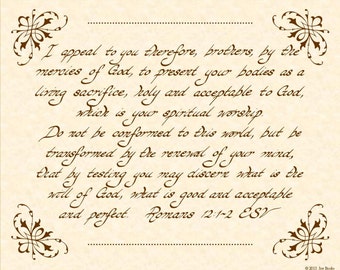 I appeal to you therefore, brothers, by the
mercies of God, to present your bodies as a
living sacrifice, holy and acceptable to God,
which is your spiritual worship.
Do not be conformed to this world, but be
transformed by the renewal of your mind,
that by testing you may discern what is the
will of God, what is good and acceptable
and perfect. Romans 12:1-2 ESV